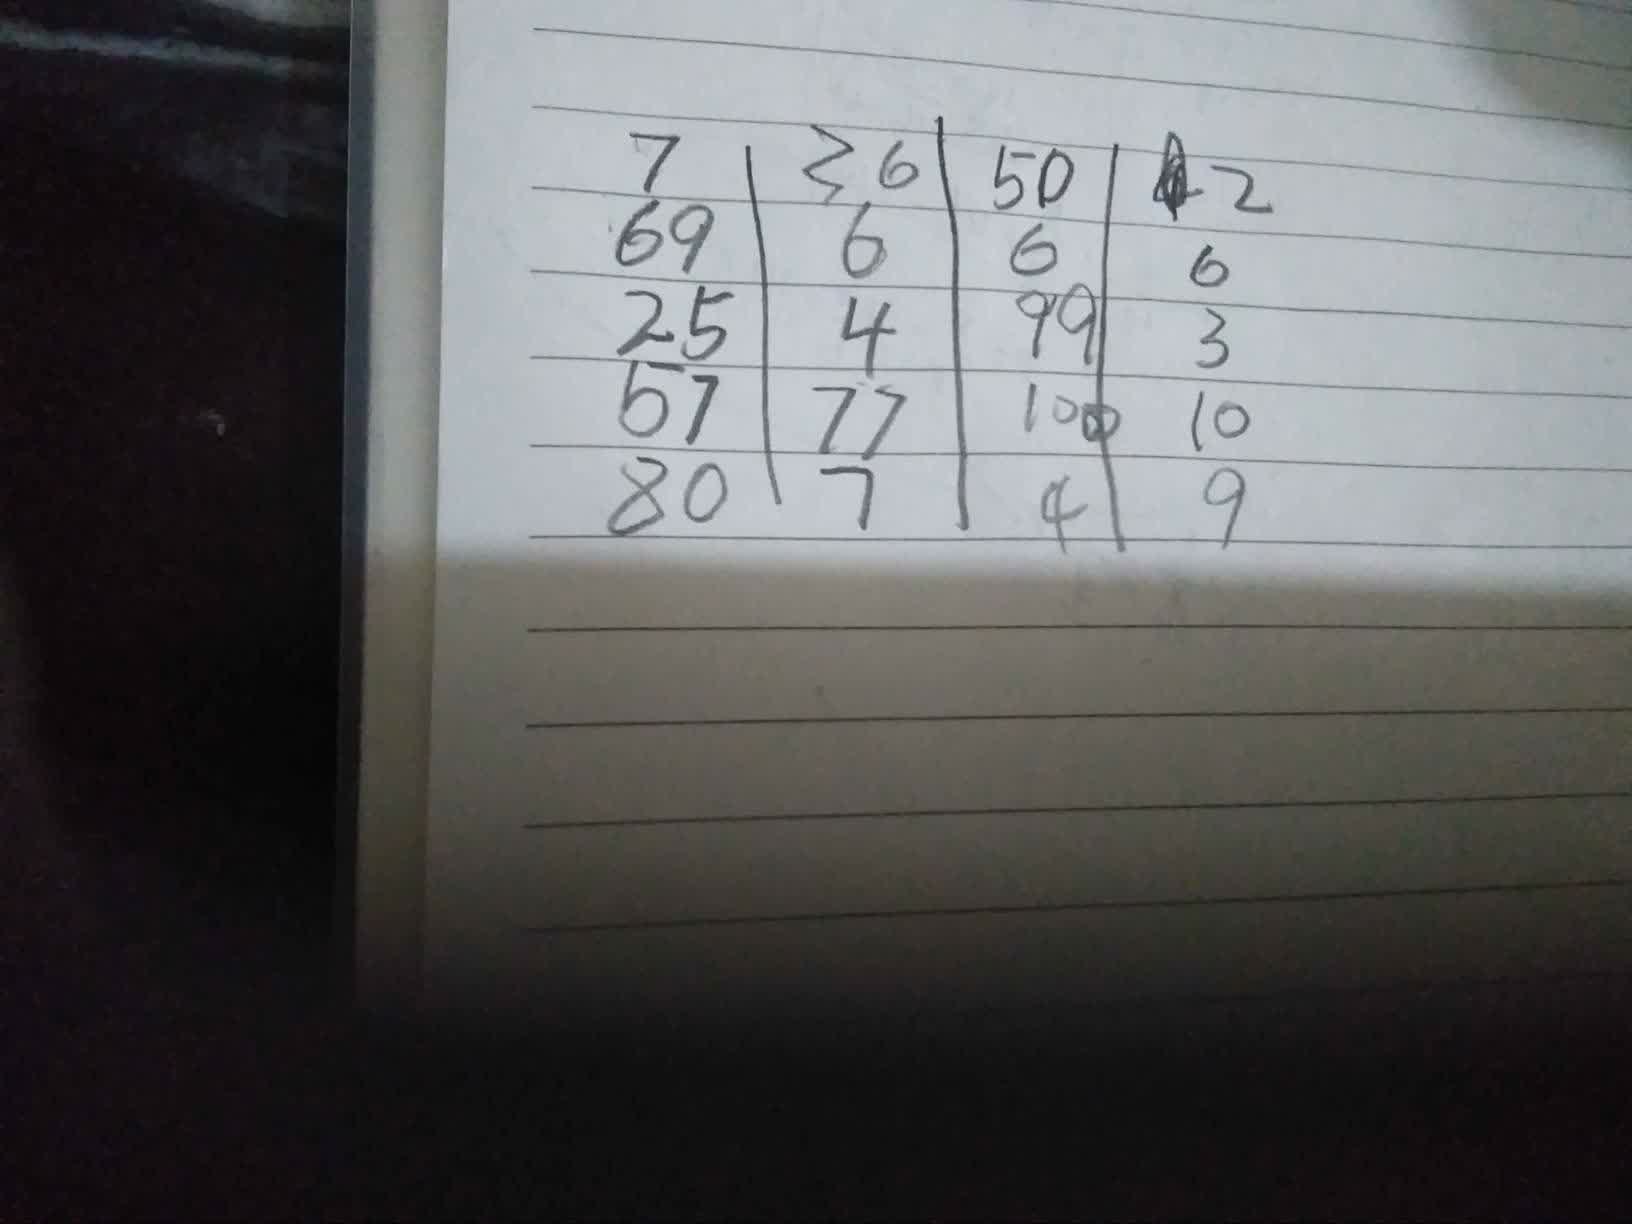 7 36 50 2
69 6 6 6
25 4 99 3
57 77 100 10
80 7 4 9